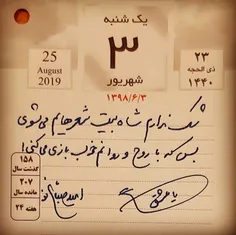 یک شنبه
۳
شهریور
۱۳۹۸/۶/۳
25
August
2019
۲۳
ذی الحجه
۱۴۴۰
شک ندارم شاه بیت شعرهایم می‌شوی
بس که با روح و روانم خوب بازی می‌کنی!
۱۵۸
گذشت سال
۲۰۷
مانده سال
هفته ۲۴